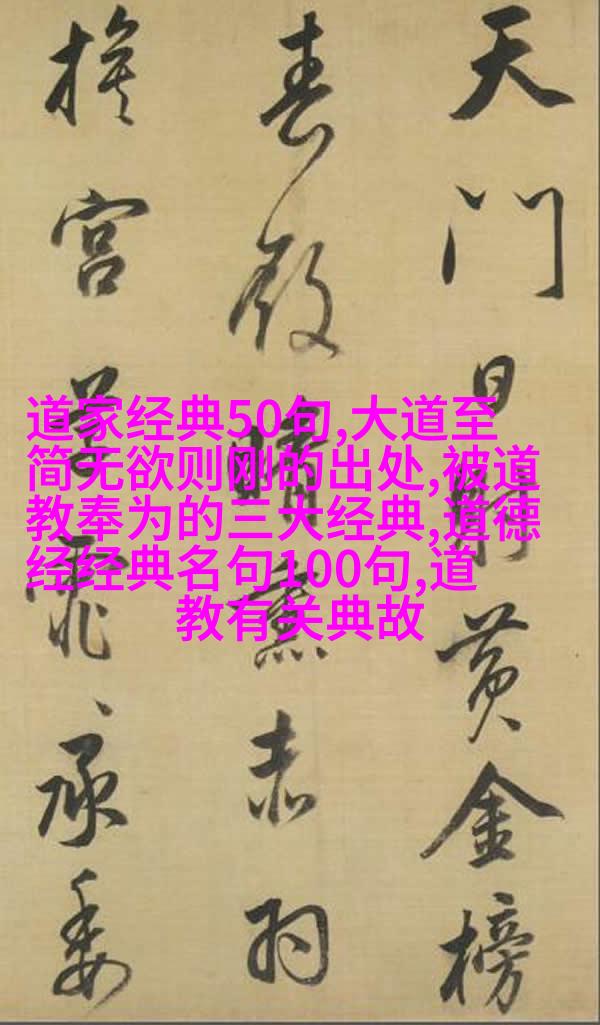 天門日射黃金榜
春殿晴薰赤羽
旗宮草霏〻承委
道家经典50句,大道至
简无欲则刚的出处,被道
教奉为的三大经典,道德
经经典名句100句,道
教有关典故